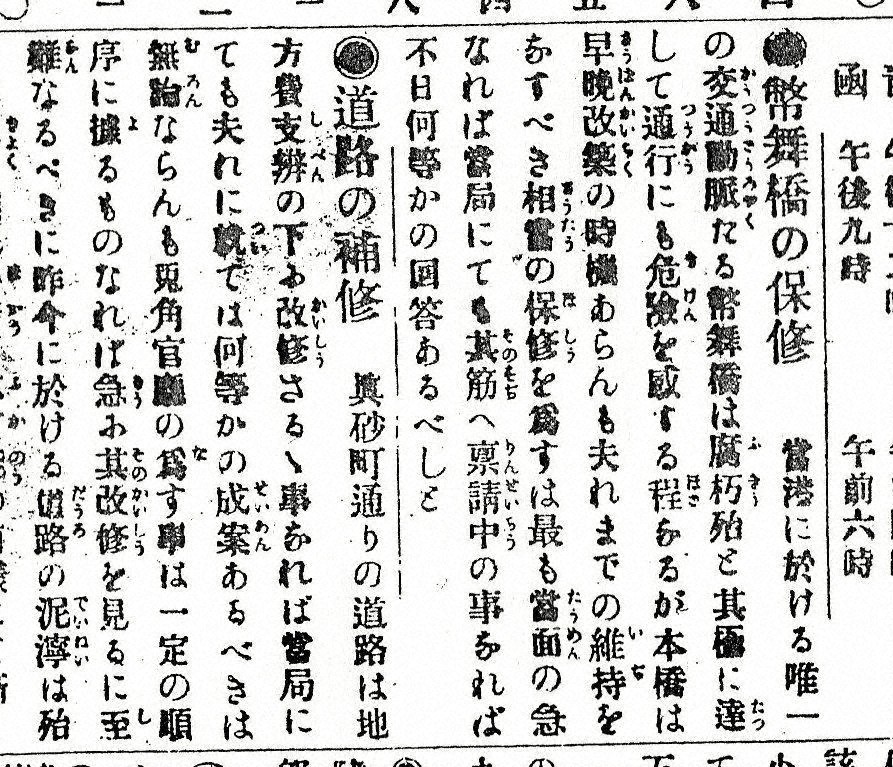 函　午後九時　　午前六時
●幣舞橋の保修　當港に於ける唯一
の変通動脈たる幣舞橋は腐朽殆と其極に達
して通行にも危險を感する程なるが本橋は
早晩改築の時機あらんも夫れまでの維持を
なすべき相當の保修を爲すは最も當面の急
なれば當局にても其筋へ禀請中の事なれば
不日何等かの回答あるべしと
●道路の補修　眞砂町通りの道路は地
方費支辨の下に改修さるゝ事なれば當局に
ても夫れに就ては何等かの成案あるべきは
無論ならんも兎角官廳の爲す事は一定の順
序に據るものなれば急に其改修を見るに至
難なるべきに昨今に於ける道路の泥濘は殆